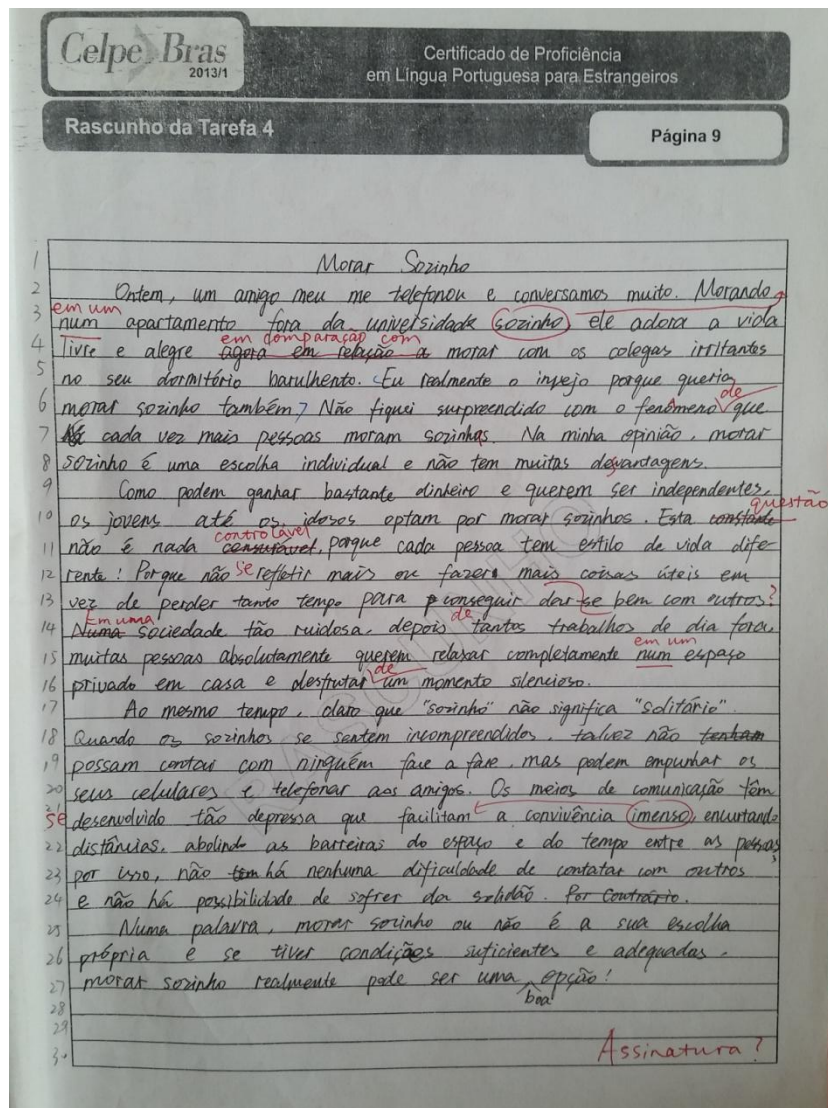 Celpe Bras
2013/1
Certificado de Proficiência
em Língua Portuguesa para Estrangeiros
Rascunho da Tarefa 4
Página 9
1 Morar Sozinho
2 Ontem, um amigo meu me telefonou e conversamos muito. Morando
em um
3 num apartamento fora da universidade sozinho, ele adora a vida
em comparação com
4 livre e alegre agora em relação a morar com os colegas irritantes
5 no seu dormitório barulhento. Eu realmente o invejo porque queria
de
6 morar sozinho também? Não fiquei surpreendido com o fenômeno que
7 cada vez mais pessoas moram sozinhas. Na minha opinião, morar
8 sozinho é uma escolha individual e não tem muitas desvantagens.
9 Como podem ganhar bastante dinheiro e querem ser independentes,
questão
10 os jovens até os idosos optam por morar sozinhos. Esta constante
controlável
11 não é nada censurável, porque cada pessoa tem estilo de vida dife
se
12 rente! Porque não refletir mais ou fazer mais coisas úteis em
13 vez de perder tanto tempo para conseguir dar-se bem com outros?
Em uma de
14 Numa sociedade tão ruidosa, depois tantos trabalhos de dia fora,
em um
15 muitas pessoas absolutamente querem relaxar completamente num espaço
de
16 privado em casa e desfrutar um momento silencioso.
17 Ao mesmo tempo, claro que "sozinho" não significa "solitário".
18 Quando os sozinhos se sentem incompreendidos, talvez não tenham
19 possam contar com ninguém face a face, mas podem empunhar os
20 seus celulares e telefonar aos amigos. Os meios de comunicação têm
21 se desenvolvido tão depressa que facilitam a convivência imenso, encurtando
22 distâncias, abolindo as barreiras do espaço e do tempo entre as pessoas,
23 por isso, não tem há nenhuma dificuldade de contatar com outros
24 e não há possibilidade de sofrer da solidão. Por Contrário.
25 Numa palavra, morar sozinho ou não é a sua escolha
26 própria e se tiver condições suficientes e adequadas,
27 morar sozinho realmente pode ser uma opção!
boa
28
29
30
Assinatura?
RASCUNHO